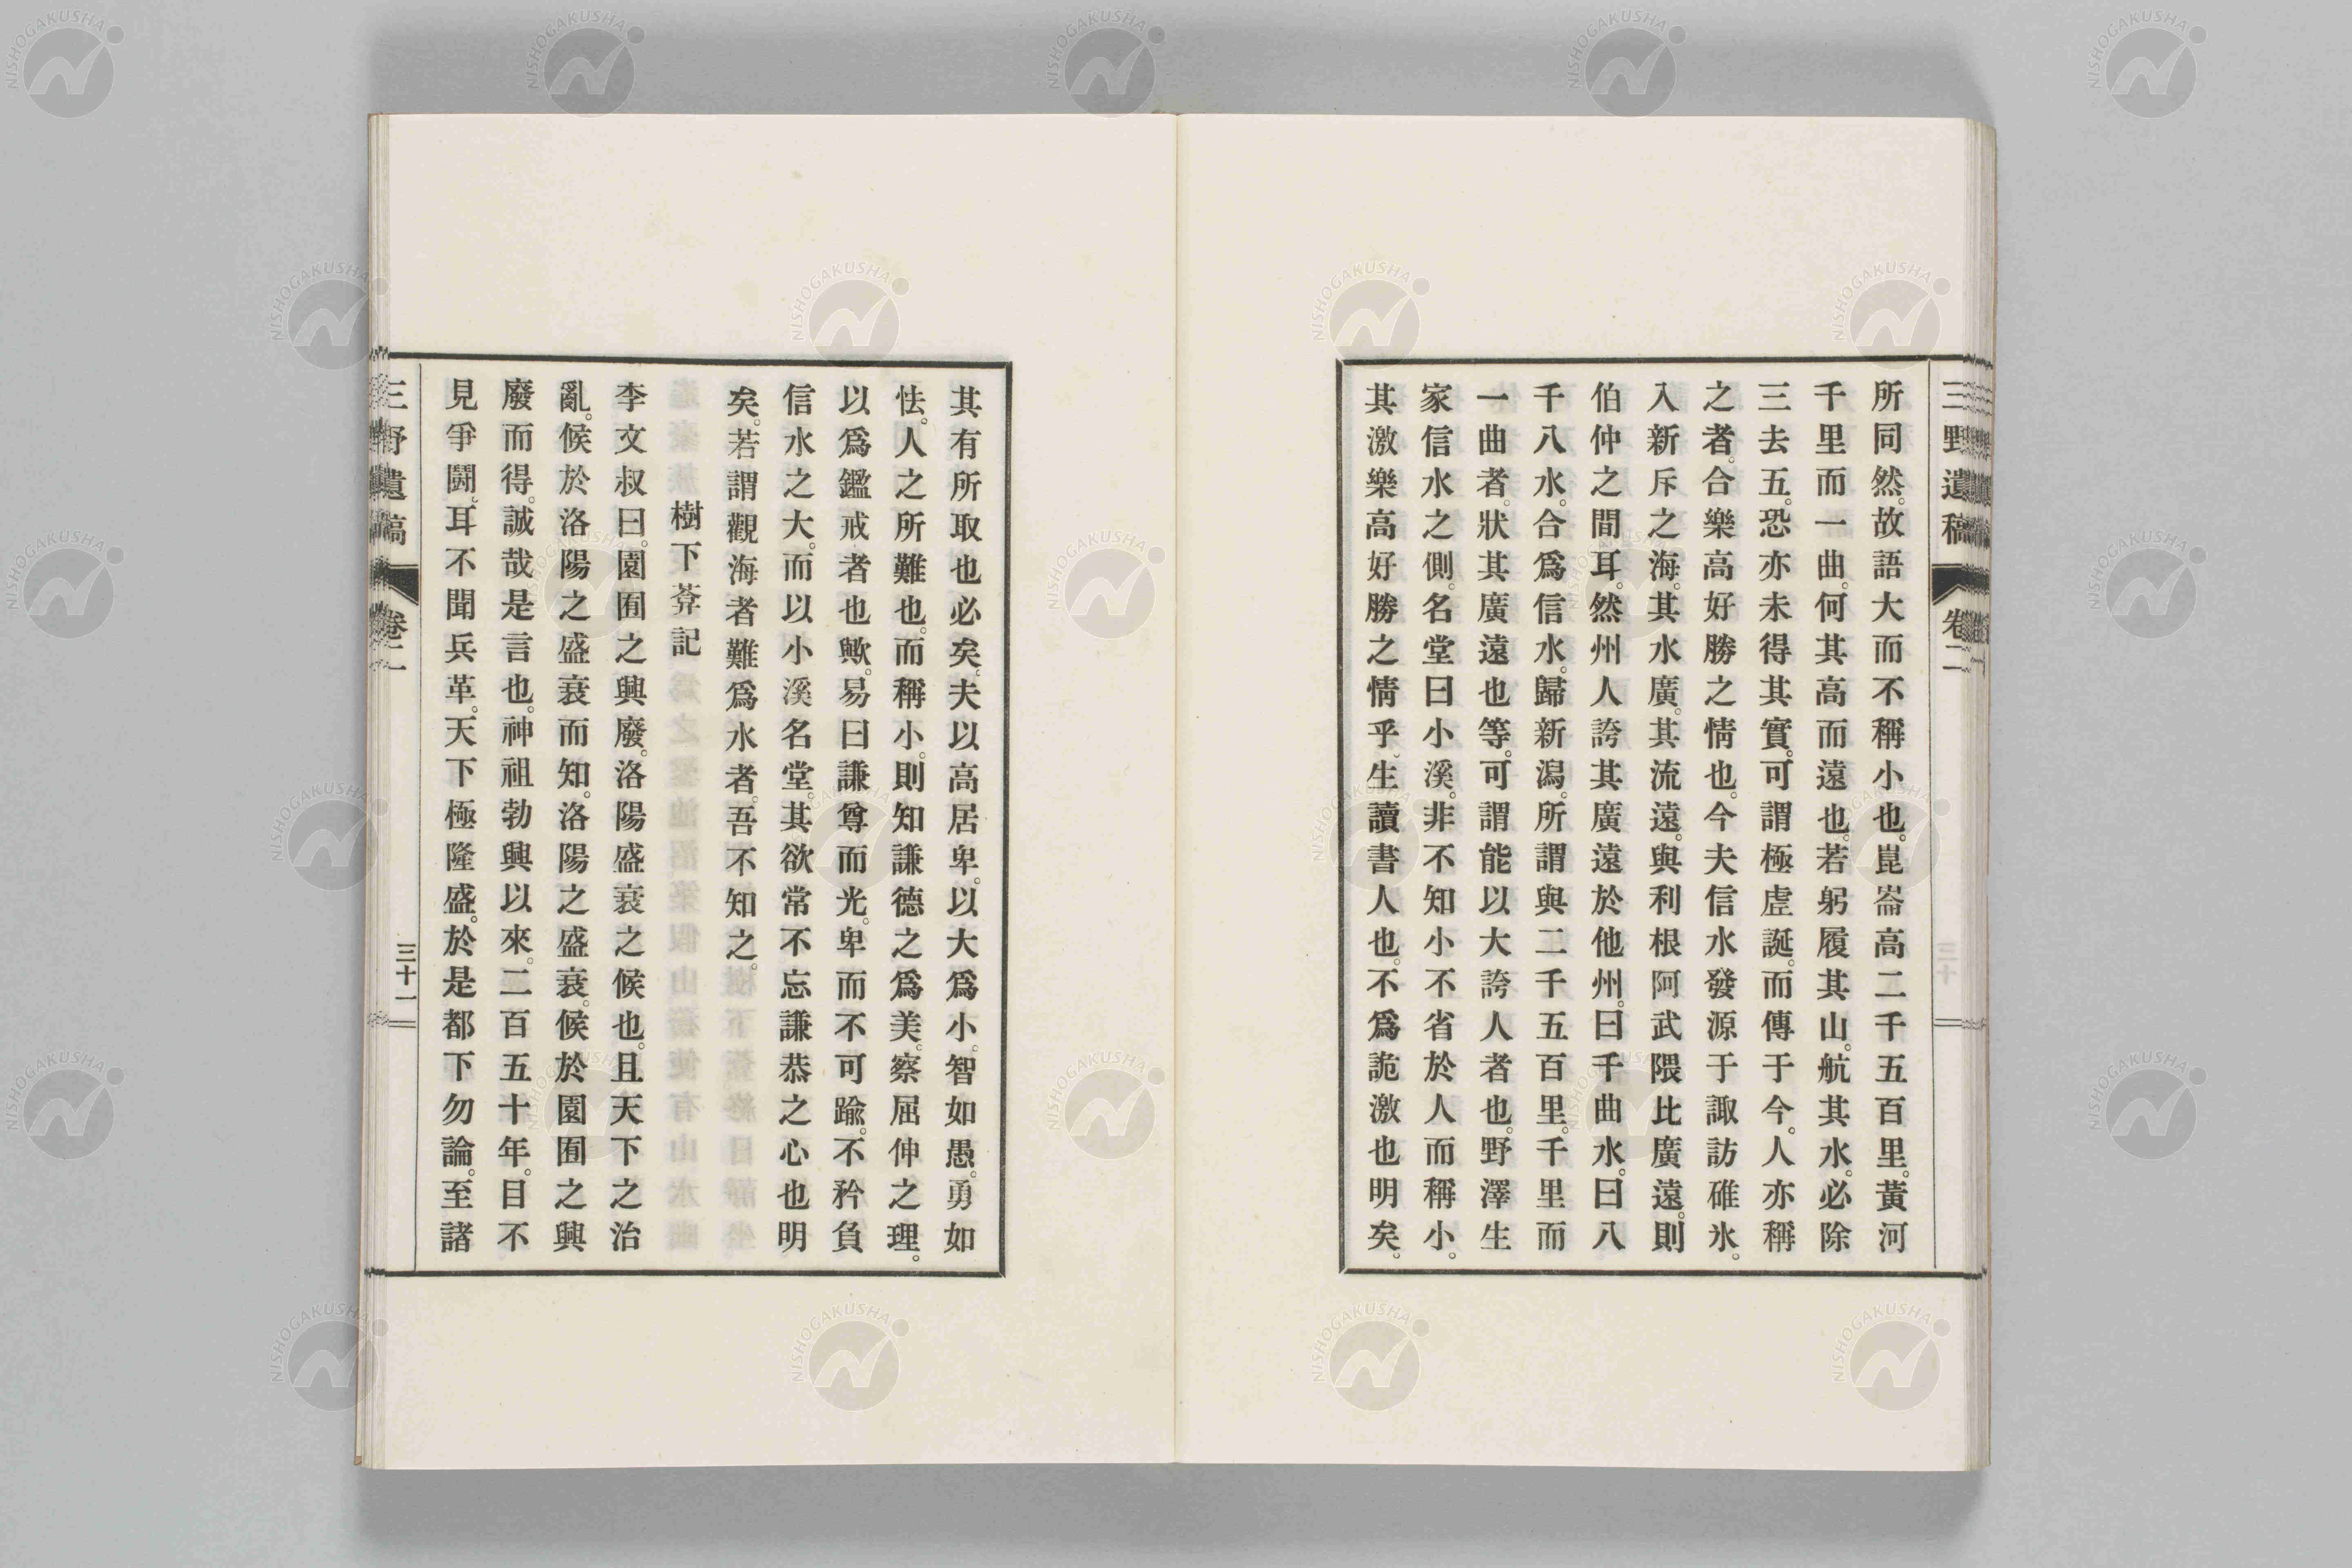 三野遺稿 卷二
所同然。故語大而不稱小也。崑崙高二千五百里。黃河
千里而一曲。何其高而遠也。若躬履其山。航其水。必除
三去五。恐亦未得其實。可謂極虛誕。而傳于今。人亦稱
之者。合樂高好勝之情也。今夫信水發源于諏訪碓氷。
入新斥之海。其水廣。其流遠。與利根阿武隈比廣遠。則
伯仲之間耳。然州人誇其廣遠於他州。曰千曲水。曰八
千八水。合爲信水。歸新潟。所謂與二千五百里。千里而
一曲者。狀其廣遠也等。可謂能以大誇人者也。野澤生
家信水之側。名堂曰小溪。非不知小不省於人而稱小。
其激樂高好勝之情乎。生讀書人也。不爲詭激也明矣。
其有所取也必矣。夫以高居卑。以大爲小。智如愚。勇如
怯。人之所難也。而稱小。則知謙德之爲美。察屈伸之理。
以爲鑑戒者也歟。易曰謙尊而光。卑而不可踰。不矜負
信水之大。而以小溪名堂。其欲常不忘謙恭之心也明
矣。若謂觀海者難爲水者。吾不知之。
樹下葊記
李文叔曰。園囿之興廢。洛陽盛衰之候也。且天下之治
亂。候於洛陽之盛衰而知。洛陽之盛衰。候於園囿之興
廢而得。誠哉是言也。神祖勃興以來。二百五十年。目不
見爭鬪。耳不聞兵革。天下極隆盛。於是都下勿論。至諸
三野遺稿 卷二 三十一
NISHOGAKUSHA